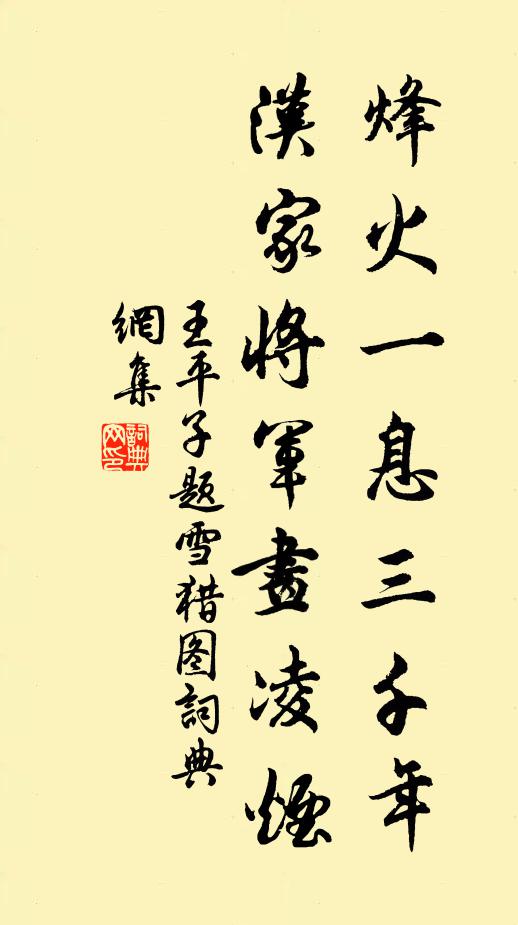 烽火一息三千年
漢家將軍畫凌煙
王平子題雪猎图詞典
網集
詞典网印